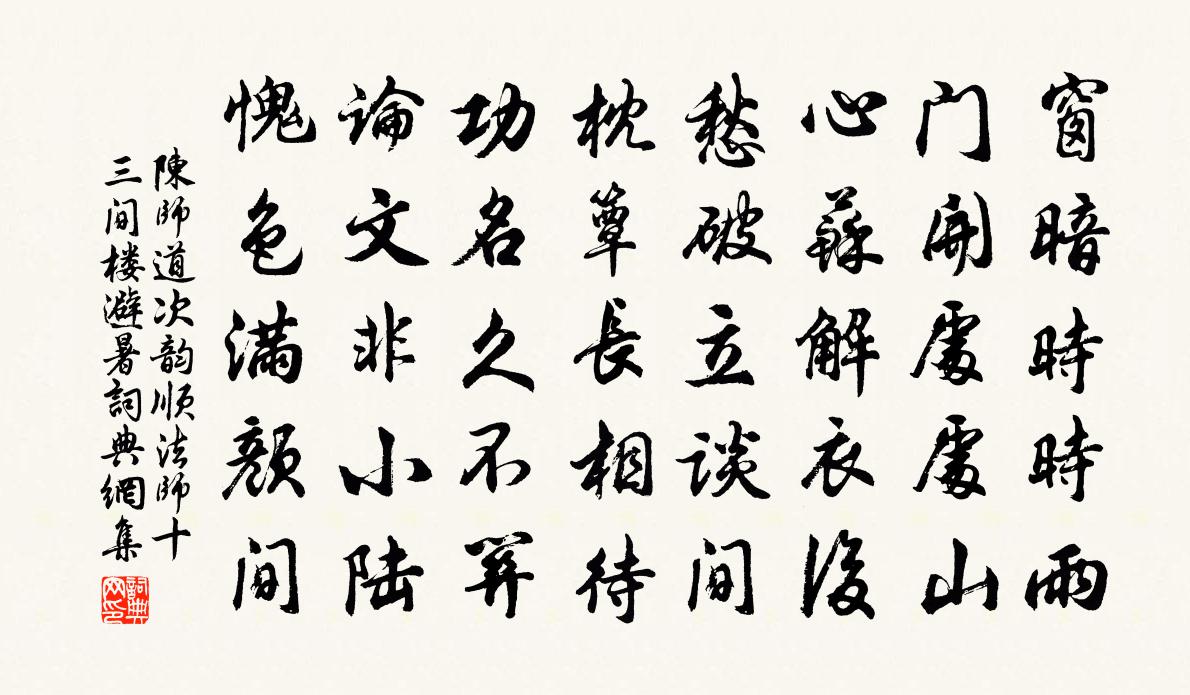 窗暗時時雨
门開處處山
心蘇解衣後
愁破立談间
枕簟長相待
功名久不關
論文非小陆
愧色满顏间
陳師道次韵顺法師十
三间楼避暑詞典網集
詞典网印